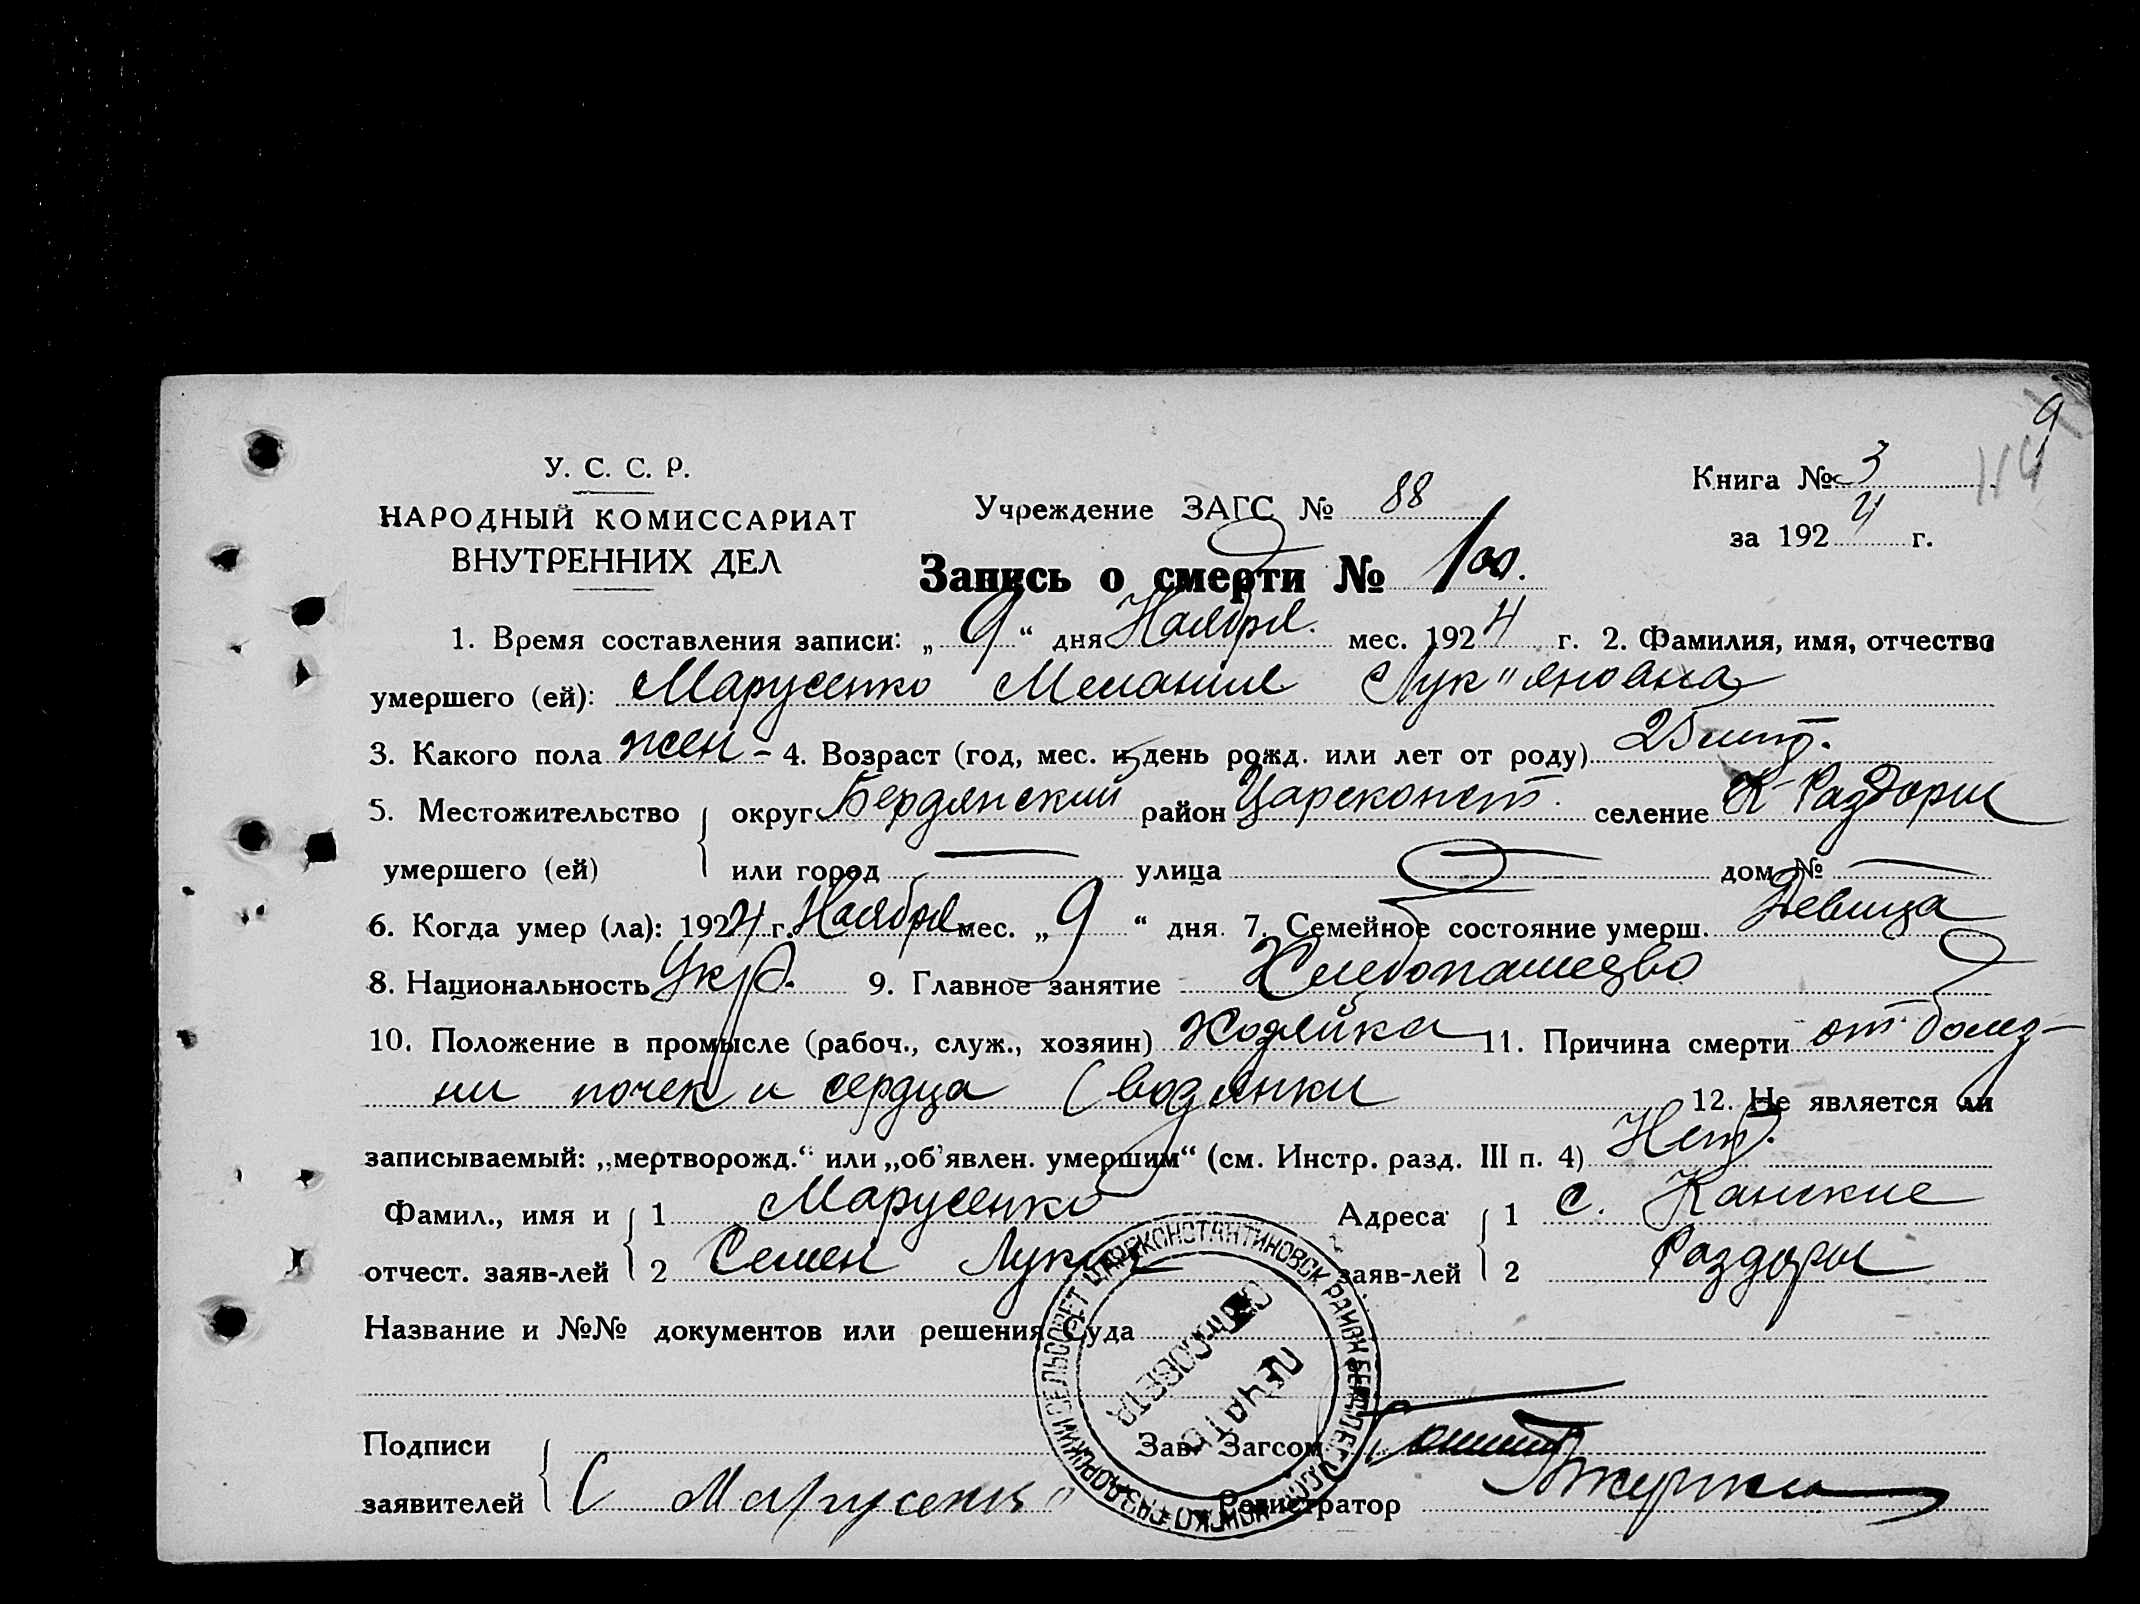 9
114
У. С. С. Р.
НАРОДНЫЙ КОМИССАРИАТ
ВНУТРЕННИХ ДЕЛ
Учреждение ЗАГС № 88
Книга № 3
за 1924 г.
Запись о смерти № 100.
1. Время составления записи: „ 9 “ дня Ноября. мес. 1924 г. 2. Фамилия, имя, отчество
умершего (ей): Марусенко Мелания Лук"яновна
3. Какого пола жен - 4. Возраст (год, мес. и день рожд. или лет от роду) 25 лет.
5. Местожительство округ Бердянский район Цареконст. селение К-Раздоры
умершего (ей) или город — улица — дом № —
6. Когда умер (ла): 1924 г. Ноября мес. „ 9 “ дня. 7. Семейное состояние умерш. Девица
8. Национальность Укр. 9. Главное занятие Хлебопашество
10. Положение в промысле (рабоч., служ., хозяин) Хозяйка 11. Причина смерти от болез-
ни почек и сердца (водянки 12. Не является ли
записываемый: „мертворожд.“ или „об’явлен. умершим“ (см. Инстр. разд. III п. 4) Нет.
Фамил., имя и 1 Марусенко Адреса 1 с. Канские
отчест. заяв-лей 2 Семен Лукич заяв-лей 2 Раздоры
Название и №№ документов или решения Суда
ЦАРЕКОНСТАНТИНОВСК РАЙОН СЕЛЬСОВЕТ
ПЕЧАТЬ
СЕЛЬСОВЕТА
Подписи Зав. Загсом
заявителей С Марусенко Регистратор